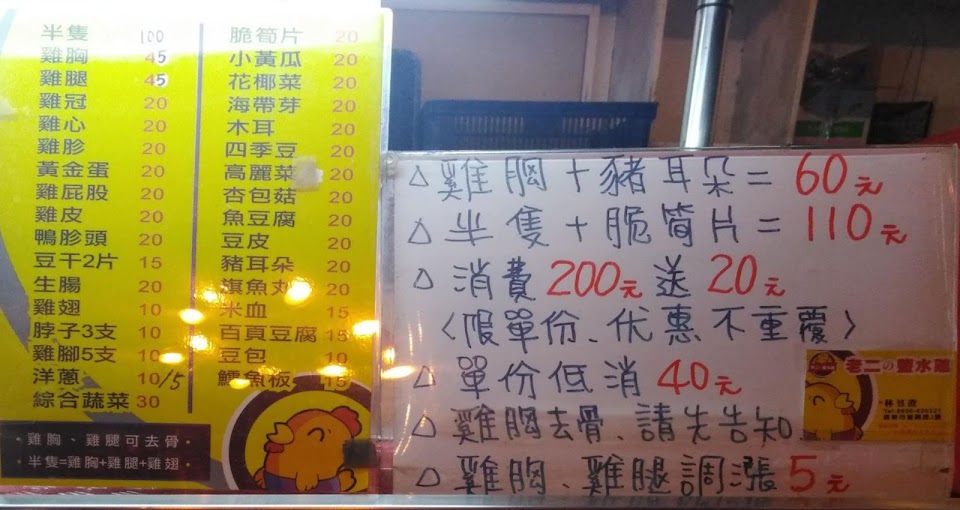 半隻 100
雞胸 45
雞腿 45
雞冠 20
雞心 20
雞胗 20
黃金蛋 20
雞屁股 20
雞皮 20
鴨胗頭 20
豆干2片 15
生腸 20
雞翅 10
脖子3支 10
雞腳5支 10
洋蔥 10/5
綜合蔬菜 30
脆筍片 20
小黃瓜 20
花椰菜 20
海帶芽 20
木耳 20
四季豆 20
高麗菜 20
杏包菇 20
魚豆腐 20
豆皮 20
豬耳朵 20
旗魚丸 20
米血 15
百頁豆腐 15
豆包 15
鱈魚板 15
·雞胸、雞腿可去骨·
·半隻=雞胸+雞腿+雞翅·
△雞胸+豬耳朵=60元
△半隻+脆筍片=110元
△消費200元送20元
〈限單份、优惠不重覆〉
△單份低消40元
△雞胸去骨、請先告知
△雞胸、雞腿調漲5元
老二の鹽水雞